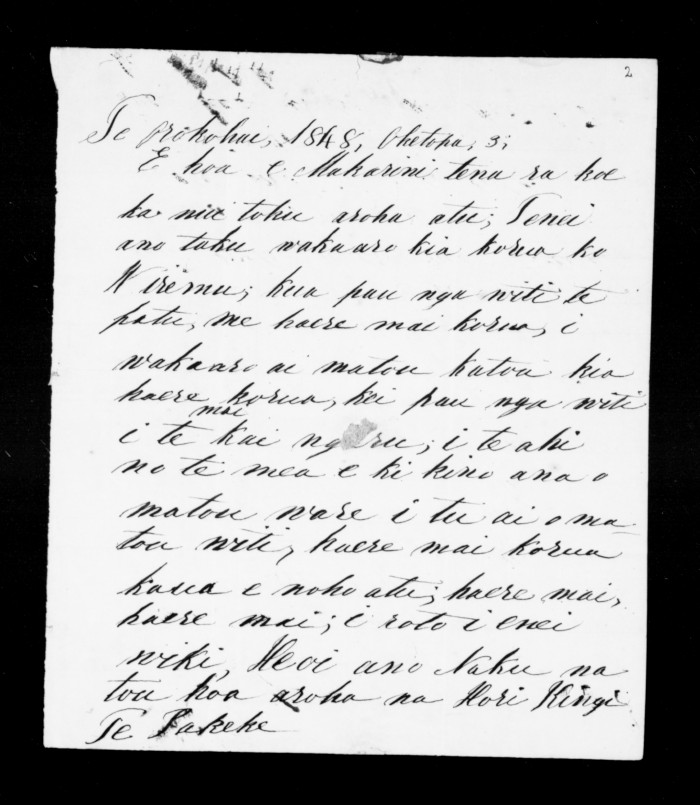 2
Te Orokohai, 1848, Oketopa, 3;
E hoa e Makarini tena ra koe
ka nui toku aroha atu; Tenei
ano taku wakaaro kia korua ko
Wiremu; kua pau nga witi te
patu, me haere mai korua, i
wakaaro ai matou katoa kia
haere korua, kei pau nga witi
mai
i te kai ; i te ahi
no te mea e ki kino ana o
matou ware i tu ai o ma
tou witi, haere mai korua
kaua e noho atu; haere mai,
haere mai; i roto i enei
wiki, Heoi ano Naku na
tou hoa aroha na Hori Kingi
Te